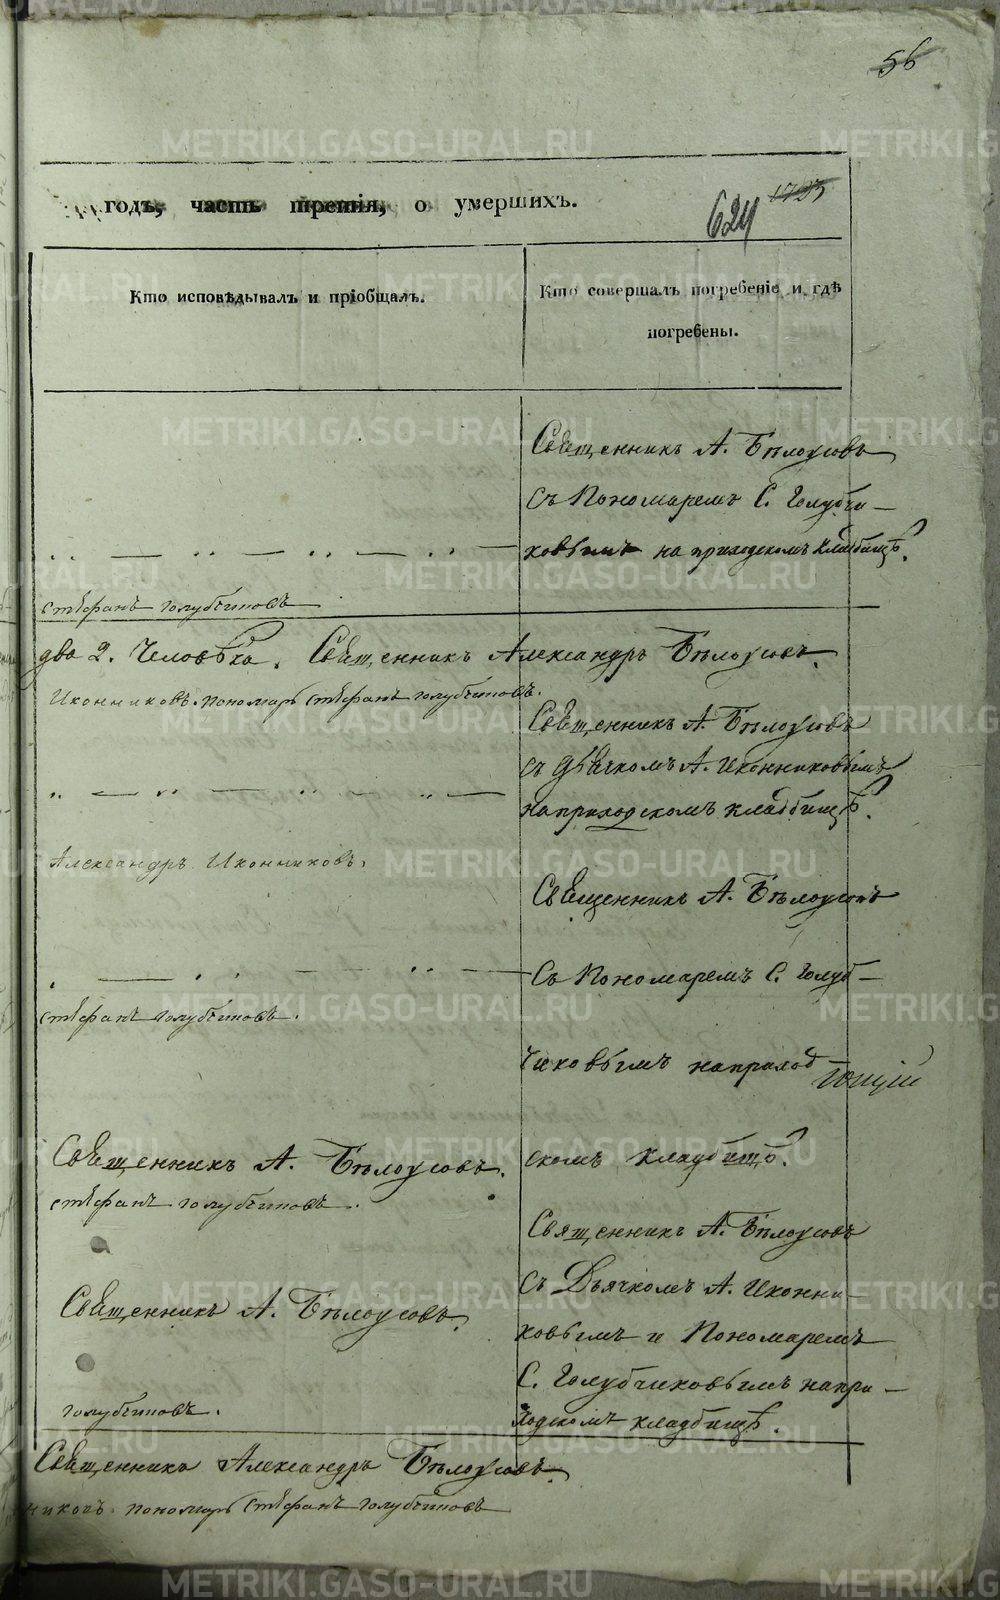 56
годъ, часть третія, о умершихъ.
1793
624
Кто исповѣдывалъ и пріобщалъ.
Кто совершалъ погребеніе и гдѣ
погребены.
Священникъ А. Бѣлоусовъ
съ Пономаремъ С. Голубчи-
ковымъ на приходскомъ кладбищѣ.
Стефанъ Голубчиковъ
два 2. Человѣка. Священникъ Александръ Бѣлоусовъ.
Иконниковъ. пономарь Стефанъ Голубчиковъ.
Священникъ А. Бѣлоусовъ
съ Дьячкомъ А. Иконниковымъ
на приходскомъ кладбищѣ.
Александръ Иконниковъ.
Священникъ А. Бѣлоусовъ
Съ Пономаремъ С. Голуб-
Стефанъ Голубчиковъ.
чиковымъ на приход-
Священникъ А. Бѣлоусовъ.
скомъ кладбищѣ.
Стефанъ Голубчиковъ.
Священникъ А. Бѣлоусовъ
съ Дьячкомъ А. Иконни-
Священникъ А. Бѣлоусовъ.
ковымъ и Пономаремъ
С. Голубчиковымъ на при-
Голубчиковъ.
ходскомъ кладбищѣ.
Священникъ Александръ Бѣлоусовъ.
никовъ пономарь Стефанъ Голубчиковъ
METRIKI.GASO-URAL.RU